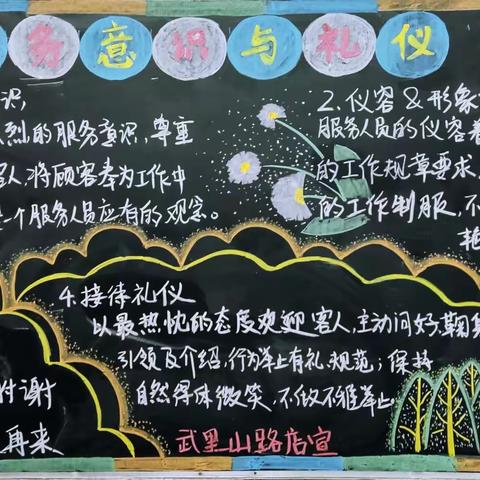 务意识与礼仪
识,
烈的服务意识,尊重
客人将顾客奉为工作中
一个服务人员应有的观念。
2.仪容&形象
服务人员的仪容着
的工作规章要求,
的工作制服,不
4.接待礼仪
以最热忱的态度欢迎客人,主动问好,鞠
引领及介绍,行为举止有礼、规范;保持
自然得体微笑,不做不雅举止。
时谢
再来
武里山路店宣